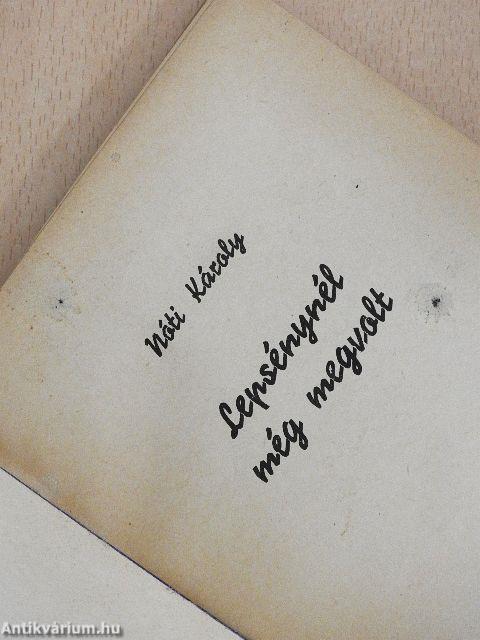 Nóti Károly
Lepsénynél
még megvolt
Antikvárium.hu